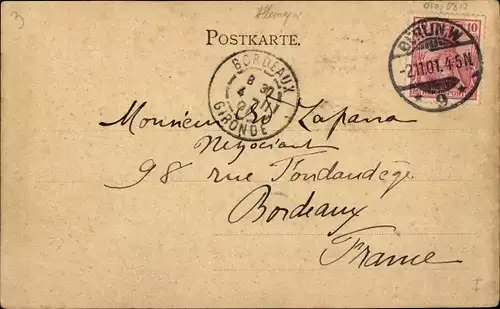 3
Allemagne
POSTKARTE.
10
BERLIN.W.
-2.11.01.4-5N.
9 *
BORDEAUX
8 30
4
GIRONDE
Monsieur Laparra
Négociant
98 rue Fondaudège
Bordeaux
France